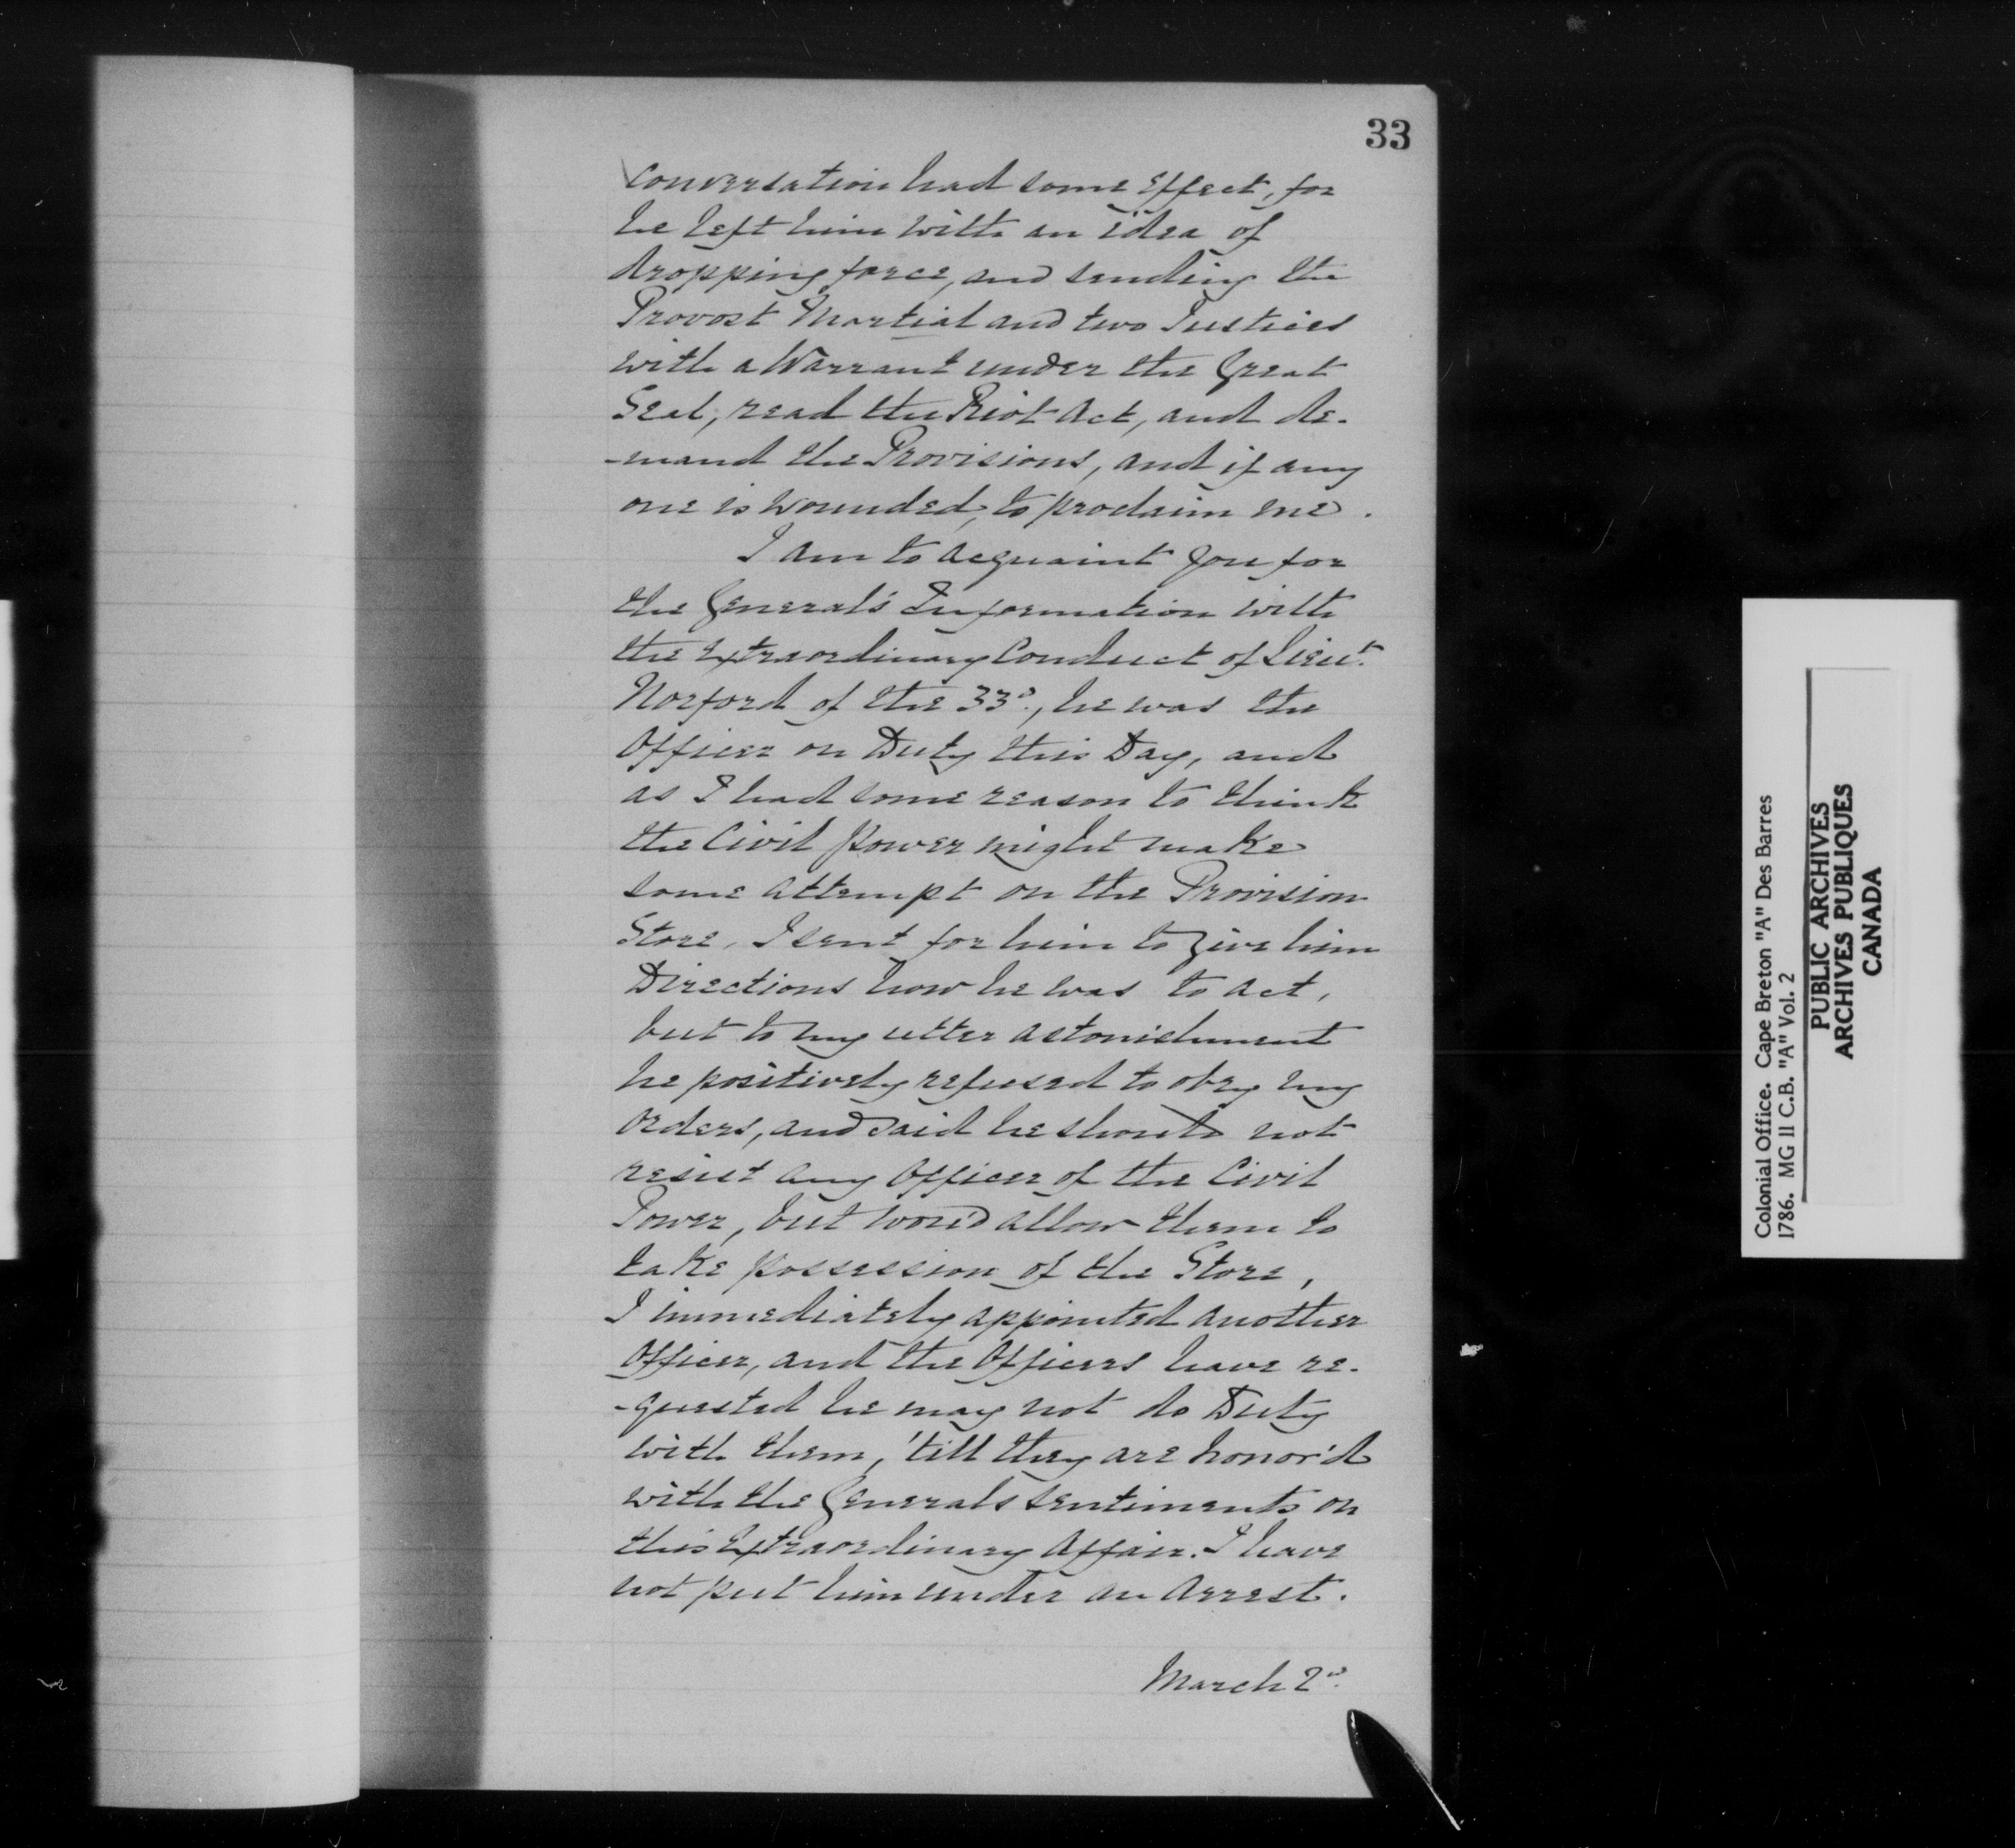 33
conversation had some Effect, for
he left him with an idea of
dropping force, and sending the
Provost Martial and two Justices
with a Warrant under the Great
Seal, read the Riot Act, and de-
-mand the Provisions, and if any
one is wounded, to proclaim me.
I am to acquaint you for
the General's Information with
the Extraordinary Conduct of Lieut.
Norford of the 33d., he was the
Officer on Duty this Day, and
as I had some reason to think
the Civil Power might make
some attempt on the Provision
Store, I sent for him to give him
Directions how he was to act,
but to my utter astonishment
he positively refused to obey my
orders, and said he should not
resist any Officer of the Civil
Power, but wou'd allow them to
take possession of the Store,
I immediately appointed another
Officer, and the Officers have re-
-quested he may not do Duty
with them, 'till they are honor'd
with the Generals sentiments on
this Extraordinary Affair. I have
not put him under an Arrest.
March 2d.
Colonial Office. Cape Breton "A" Des Barres
1786. MG 11 C.B. "A" Vol. 2
PUBLIC ARCHIVES
ARCHIVES PUBLIQUES
CANADA